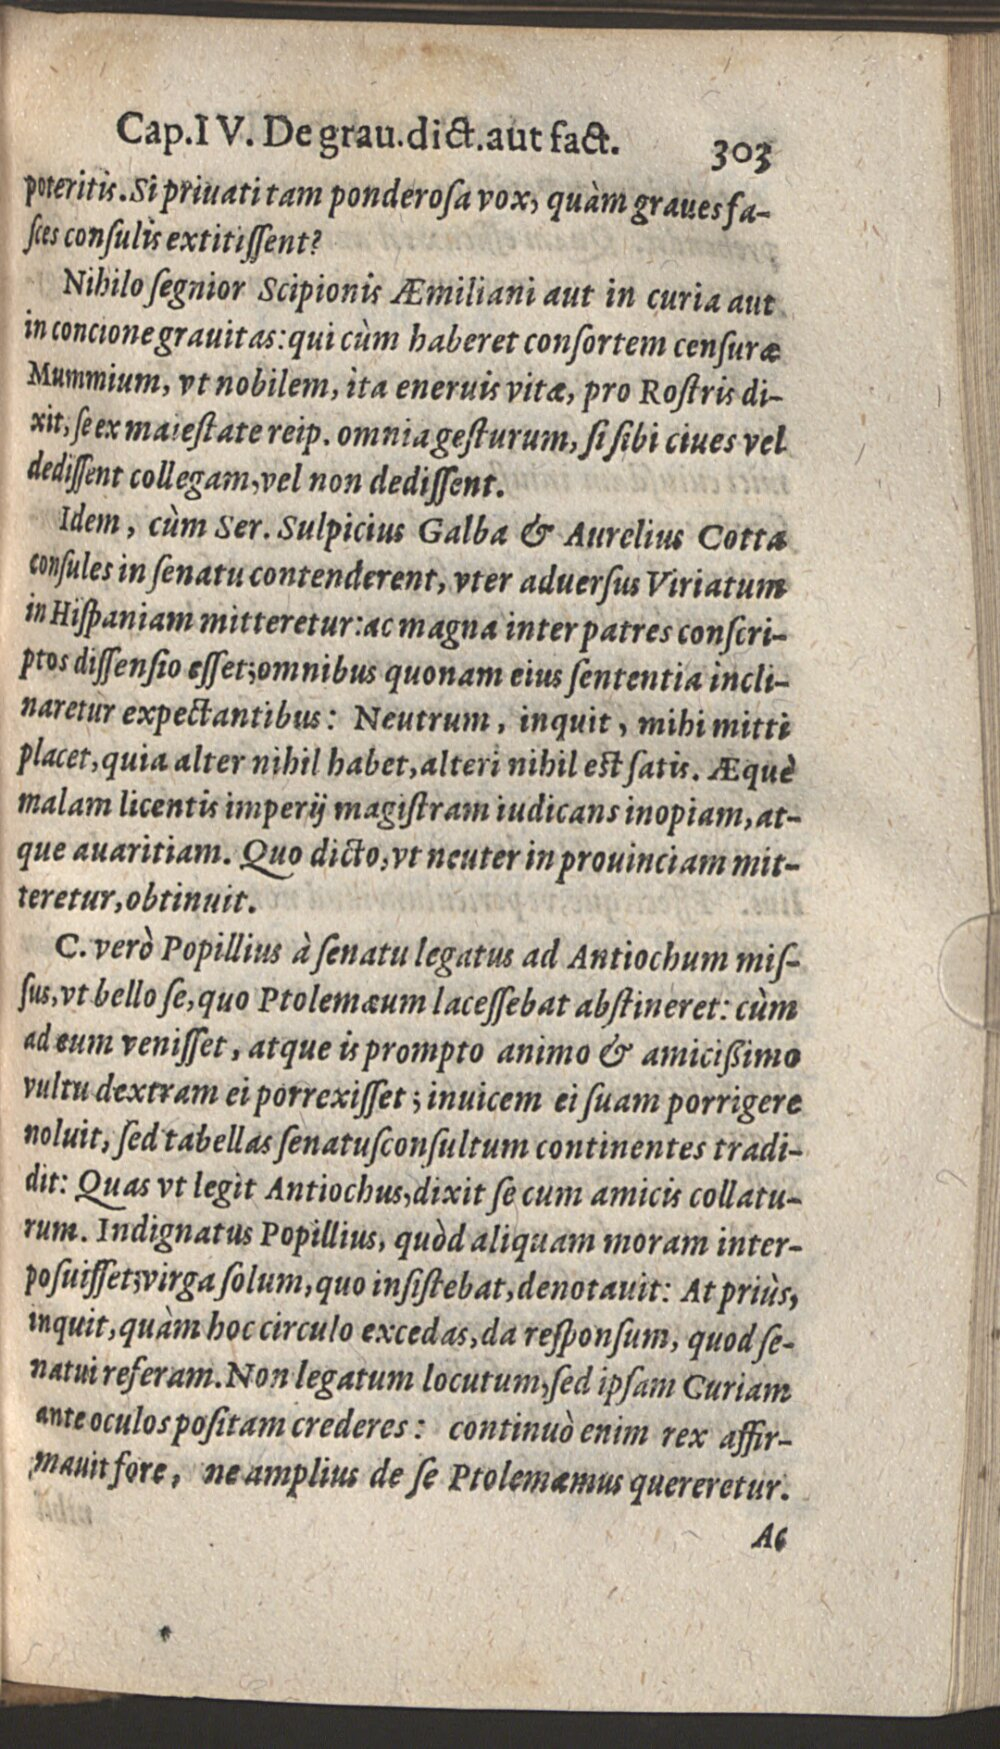 Cap. IV. De grau. dict. aut fact. 303
poteritis. Si priuati tam ponderoſa vox, quàm graues fa-
ſces conſulis extitiſſent?
Nihilo ſegnior Scipionis Æmiliani aut in curia aut
in concione grauitas: qui cùm haberet conſortem cenſuræ
Mummium, vt nobilem, ita eneruis vitæ, pro Roſtris di-
xit, ſe ex maieſtate reip. omnia geſturum, ſi ſibi ciues vel
dediſſent collegam, vel non dediſſent.
Idem, cùm Ser. Sulpicius Galba & Aurelius Cotta
conſules in ſenatu contenderent, vter aduerſus Viriatum
in Hiſpaniam mitteretur: ac magna inter patres conſcri-
ptos diſſenſio eſſet; omnibus quonam eius ſententia incli-
naretur expectantibus: Neutrum, inquit, mihi mitti
placet, quia alter nihil habet, alteri nihil est ſatis. Æquè
malam licentis imperij magiſtram iudicans inopiam, at-
que auaritiam. Quo dicto, vt neuter in prouinciam mit-
teretur, obtinuit.
C. verò Popillius à ſenatu legatus ad Antiochum miſ-
ſus, vt bello ſe, quo Ptolemæum laceſſebat abſtineret: cùm
ad eum veniſſet, atque is prompto animo & amicißimo
vultu dextram ei porrexiſſet; inuicem ei ſuam porrigere
noluit, ſed tabellas ſenatuſconſultum continentes tradi-
dit: Quas vt legit Antiochus, dixit ſe cum amicis collatu-
rum. Indignatus Popillius, quòd aliquam moram inter-
poſuiſſet; virga ſolum, quo inſiſtebat, denotauit: At priùs,
inquit, quàm hoc circulo excedas, da reſponſum, quod ſe-
natui referam. Non legatum locutum, ſed ipſam Curiam
ante oculos poſitam crederes: continuò enim rex affir-
mauit fore, ne amplius de ſe Ptolemæmus quereretur.
Ac